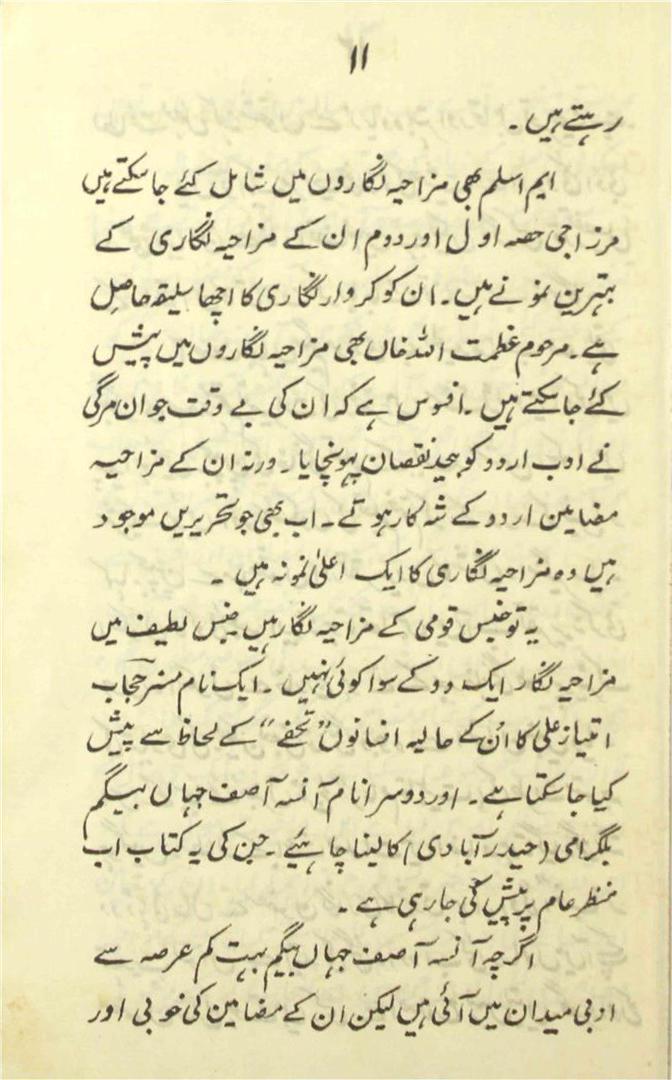 ۱۱
رہتے ہیں۔
ایم اسلم بھی مزاحیہ نگاروں میں شامل کئے جا سکتے ہیں
مرزا جی حصہ اول اور دوم ان کے مزاحیہ نگاری کے
بہترین نمونے ہیں۔ ان کو کروار نگاری کا اچھا سلیقہ حاصل
ہے۔ مرحوم عظمت اللہ خاں بھی مزاحیہ نگاروں میں پیش
کئے جا سکتے ہیں۔ افسوس ہے کہ ان کی بے وقت جوان مرگی
نے ادب اردو کو بیحد نقصان پہونچایا۔ ورنہ ان کے مزاحیہ
مضامین اردو کے شہ کار ہوتے۔ اب بھی جو تحریریں موجود
ہیں وہ مزاحیہ نگاری کا ایک اعلیٰ نمونہ ہیں۔
یہ تو جنس قومی کے مزاحیہ نگار ہیں جنس لطیف میں
مزاحیہ نگار ایک دو کے سوا کوئی نہیں۔ ایک نام مسز حجاب
امتیاز علی کا اُن کے حالیہ افسانوں "تحفے" کے لحاظ سے پیش
کیا جا سکتا ہے۔ اور دوسرا نام آنسہ آصف جہاں بیگم
بلگرامی (حیدرآبادی) کا لینا چاہئیے۔ جن کی یہ کتاب اب
منظر عام پر پیش کی جا رہی ہے۔
اگرچہ آنسہ آصف جہاں بیگم بہت کم عرصہ سے
ادبی میدان میں آئی ہیں لیکن ان کے مضامین کی خوبی اور